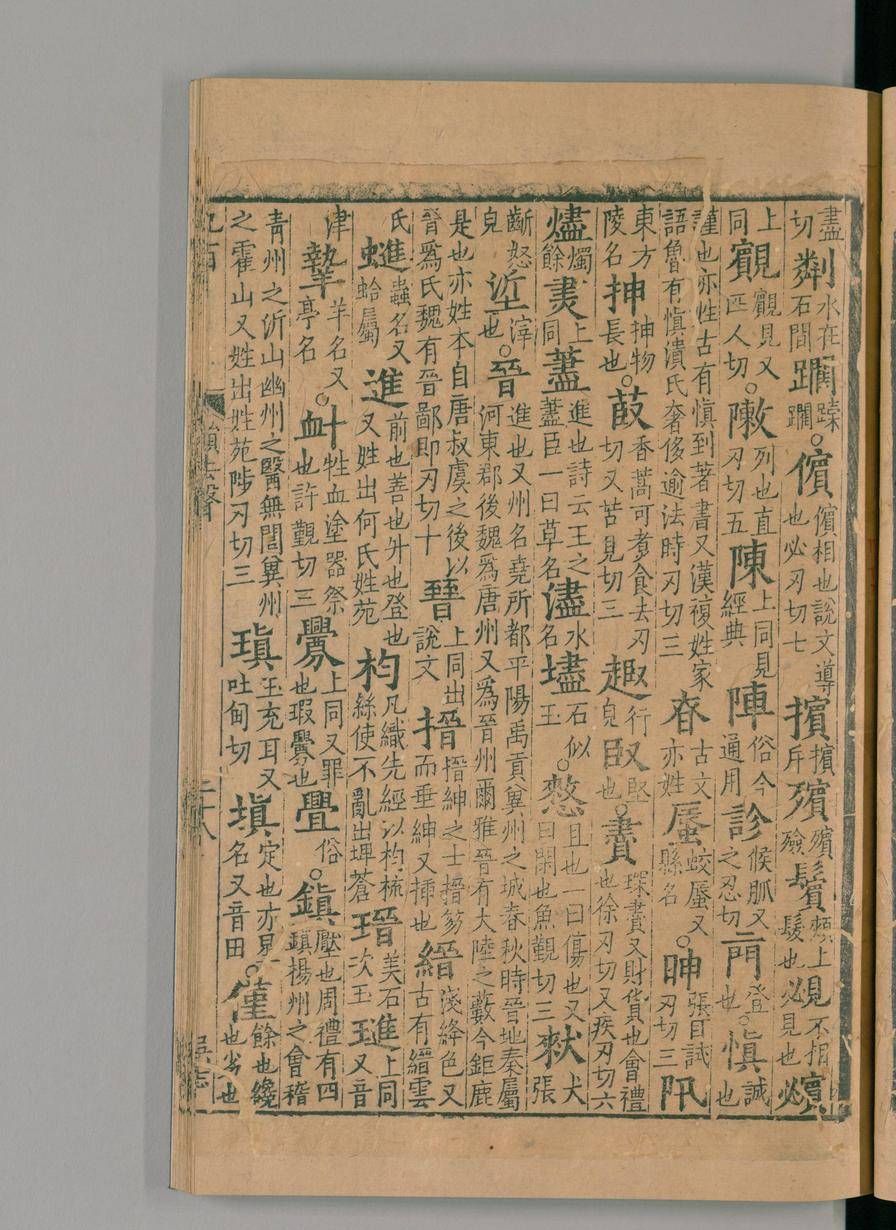 盡切粼水在石間躙躁躙○儐儐相也說文導也必刃切七擯擯斥殯殯殮鬢頰上髮也覕不相見也
上同寴寴見又匹人切○敶列也直刃切五陳上同見經典陣俗今通用診候脈又之忍切䦟登也○慎誠也
謹也亦姓古有慎到著書又漢複姓家語魯有慎潰氏奢侈逾法時刃切三昚古文亦姓蜃蛟蜃又縣名○眒張目試刃切三阠
東方陵名抻抻物長也○菣香蒿可煮食去刃切又苦見切三趣行皃臤堅也○賮琛賮又財貨也會禮也徐刃切又疾刃切六
燼燭餘㶳上同藎進也詩云王之藎臣一曰草名濜水名璶石似玉○憖且也一曰傷也又曰閑也魚覲切三猌犬張
齗怒皃垽滓也○晉進也又州名堯所都平陽禹貢冀州之城春秋時晉地秦屬河東郡後魏爲唐州又爲晉州爾雅晉有大陸之藪今鉅鹿
是也亦姓本自唐叔虞之後以晉爲氏魏有晉鄙即刃切十㬜上同出說文搢搢紳之士搢笏而垂紳又揷也縉淺絳色又古有縉雲
氏蟲名又蛤屬進前也善也升也登也又姓出何氏姓苑枃凡織先經以枃梳絲使不亂出埤蒼瑨美石次玉璡上同又音
津羊名又亭名○衅牲血塗器祭也許覲切三釁上同又罪也瑕釁也舋俗○鎮壓也周禮有四鎮揚州之會稽
青州之沂山幽州之醫無閭冀州之霍山又姓出姓苑陟刃切三瑱玉充耳又吐甸切填定也亦星名又音田○僅餘也纔也劣也